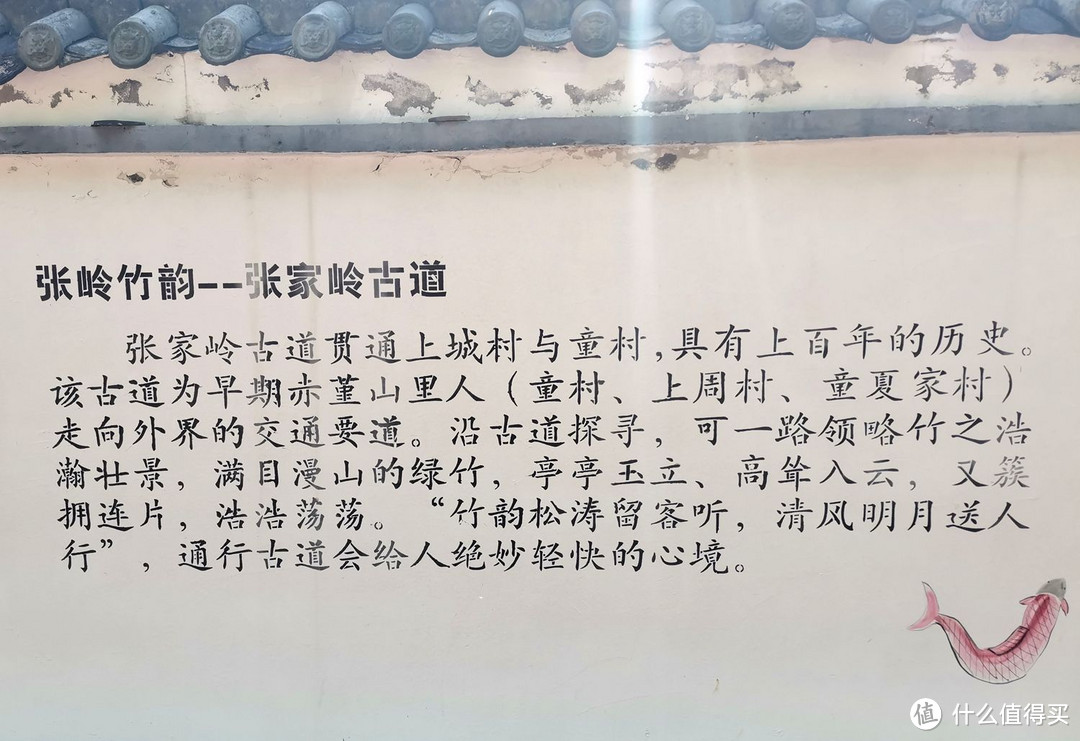 张岭竹韵--张家岭古道
张家岭古道贯通上城村与童村,具有上百年的历史。
该古道为早期赤堇山里人（童村、上周村、童夏家村）
走向外界的交通要道。沿古道探寻，可一路领略竹之浩
瀚壮景，满目漫山的绿竹，亭亭玉立、高耸入云，又簇
拥连片，浩浩荡荡。“竹韵松涛留客听，清风明月送人
行”，通行古道会给人绝妙轻快的心境。
值 什么值得买